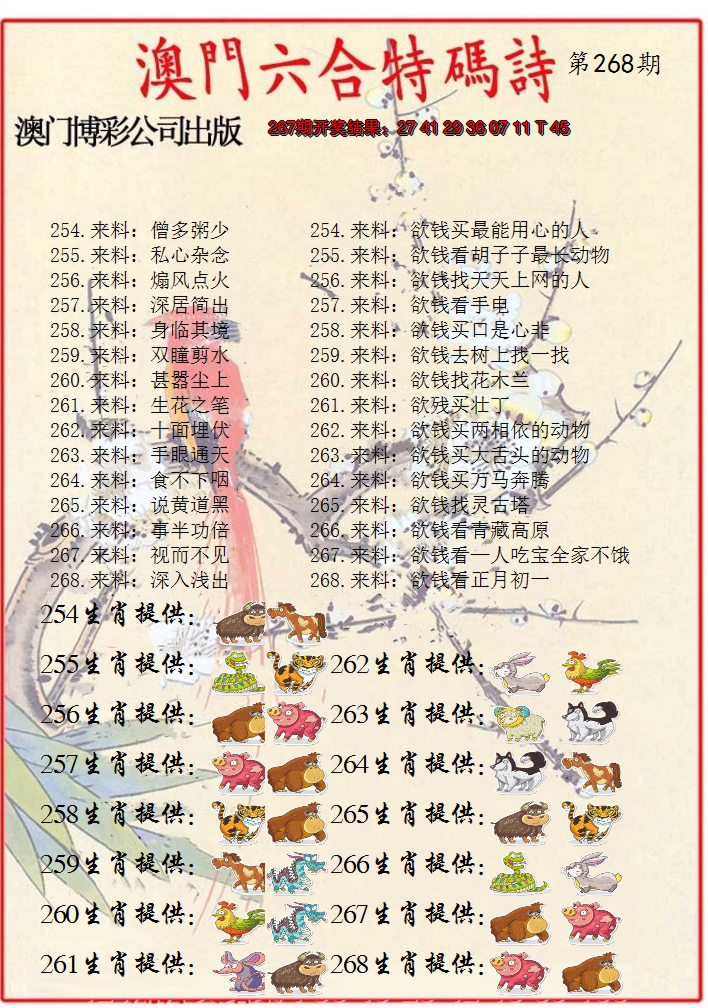 澳門六合特碼詩 第268期
澳门博彩公司出版 267期开奖结果：27 41 29 36 07 11 T 45
254.来料：僧多粥少 254.来料：欲钱买最能用心的人
255.来料：私心杂念 255.来料：欲钱看胡子子最长动物
256.来料：煽风点火 256.来料：欲钱找天天上网的人
257.来料：深居简出 257.来料：欲钱看手电
258.来料：身临其境 258.来料：欲钱买口是心非
259.来料：双瞳剪水 259.来料：欲钱去树上找一找
260.来料：甚嚣尘上 260.来料：欲钱找花木兰
261.来料：生花之笔 261.来料：欲残买壮丁
262.来料：十面埋伏 262.来料：欲钱买两相依的动物
263.来料：手眼通天 263.来料：欲钱买大舌头的动物
264.来料：食不下咽 264.来料：欲钱买万马奔腾
265.来料：说黄道黑 265.来料：欲钱找灵古塔
266.来料：事半功倍 266.来料：欲钱看青藏高原
267.来料：视而不见 267.来料：欲钱看一人吃宝全家不饿
268.来料：深入浅出 268.来料：欲钱看正月初一
254生肖提供：
255生肖提供： 262生肖提供：
256生肖提供： 263生肖提供：
257生肖提供： 264生肖提供：
258生肖提供： 265生肖提供：
259生肖提供： 266生肖提供：
260生肖提供： 267生肖提供：
261生肖提供： 268生肖提供：